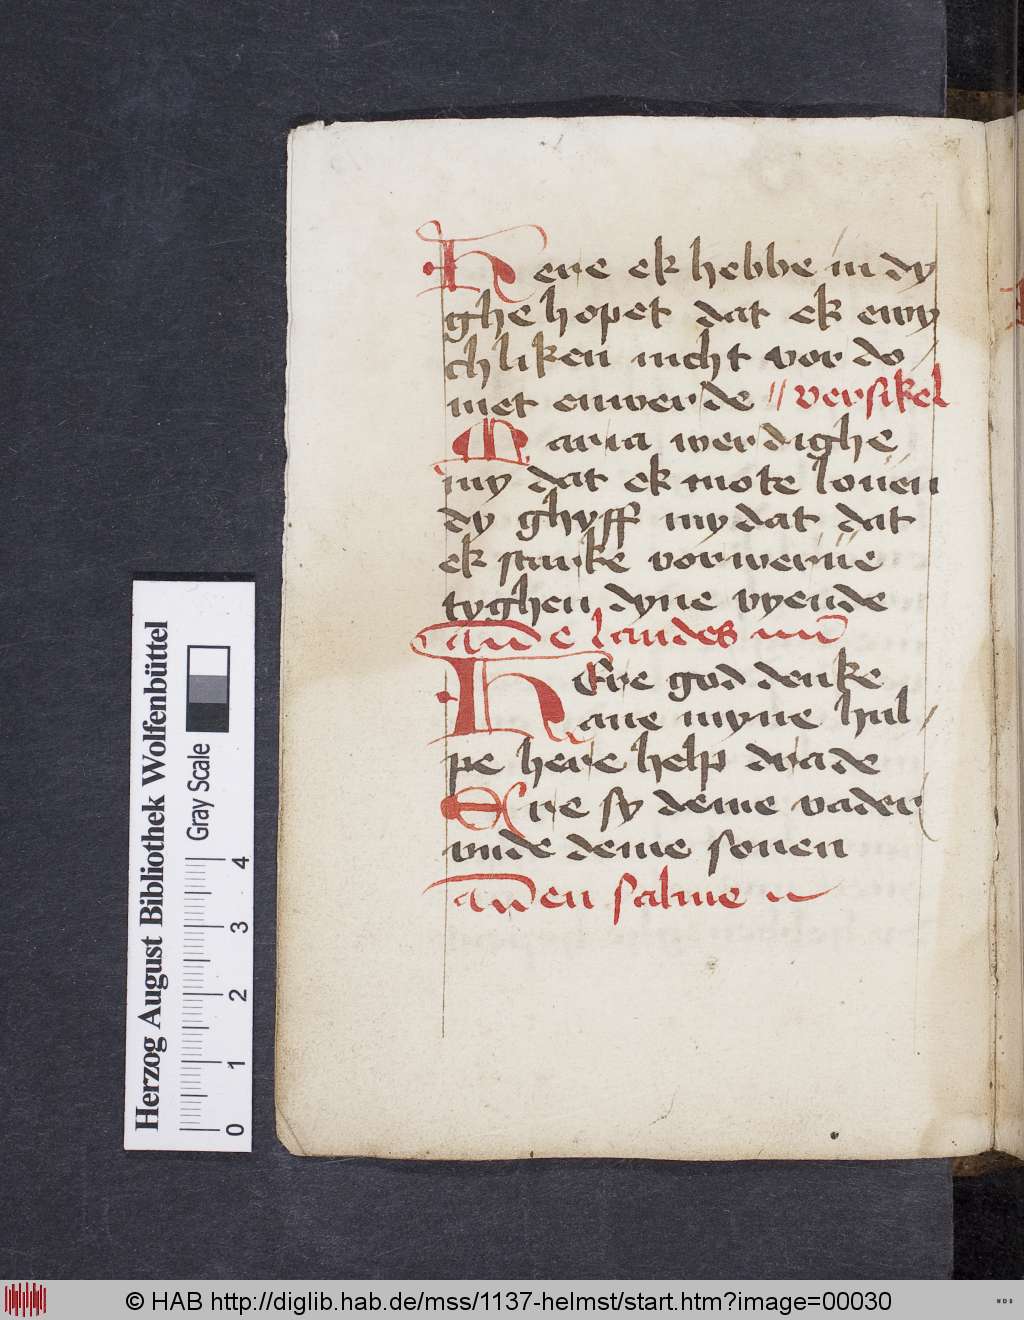 Here ek hebbe in dy
ghe hopet dat ek ewy
chliken nicht vor do
met enwerde // versikel
Maria werdighe
my dat ek mote louen
dy ghyff my dat dat
ek starke vorwerue
tyghen dyne vyende
laudes
HEre god denke
ane myne hul
pe here help drade
Ere sy deme vader
vnde deme sonen
salme
Herzog August Bibliothek Wolfenbüttel
Gray Scale
0 1 2 3 4
© HAB http://diglib.hab.de/mss/1137-helmst/start.htm?image=00030